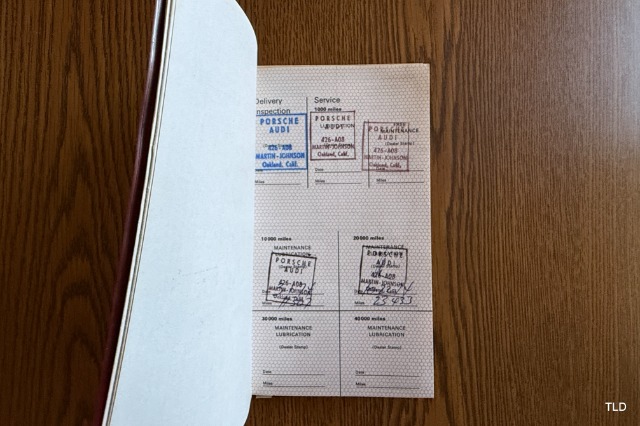 Delivery
Inspection
PORSCHE
AUDI
426-A08
MARTIN-JOHNSON
Oakland, Calif.
Miles
Service
1000 miles
PORSCHE
AUDI
426-A08
MARTIN-JOHNSON
Oakland, Calif.
Date
Miles
FREE
MAINTENANCE
(Dealer Stamp)
PORSCHE
AUDI
426-A08
MARTIN-JOHNSON
Oakland, Calif.
Miles
10000 miles
MAINTENANCE
LUBRICATION
PORSCHE
AUDI
426-A08
MARTIN-JOHNSON
Miles
20000 miles
MAINTENANCE
PORSCHE
AUDI
426-A08
MARTIN-JOHNSON
Miles 23 433
30000 miles
MAINTENANCE
LUBRICATION
(Dealer Stamp)
Date
Miles
40000 miles
MAINTENANCE
LUBRICATION
(Dealer Stamp)
Date
Miles
TLD